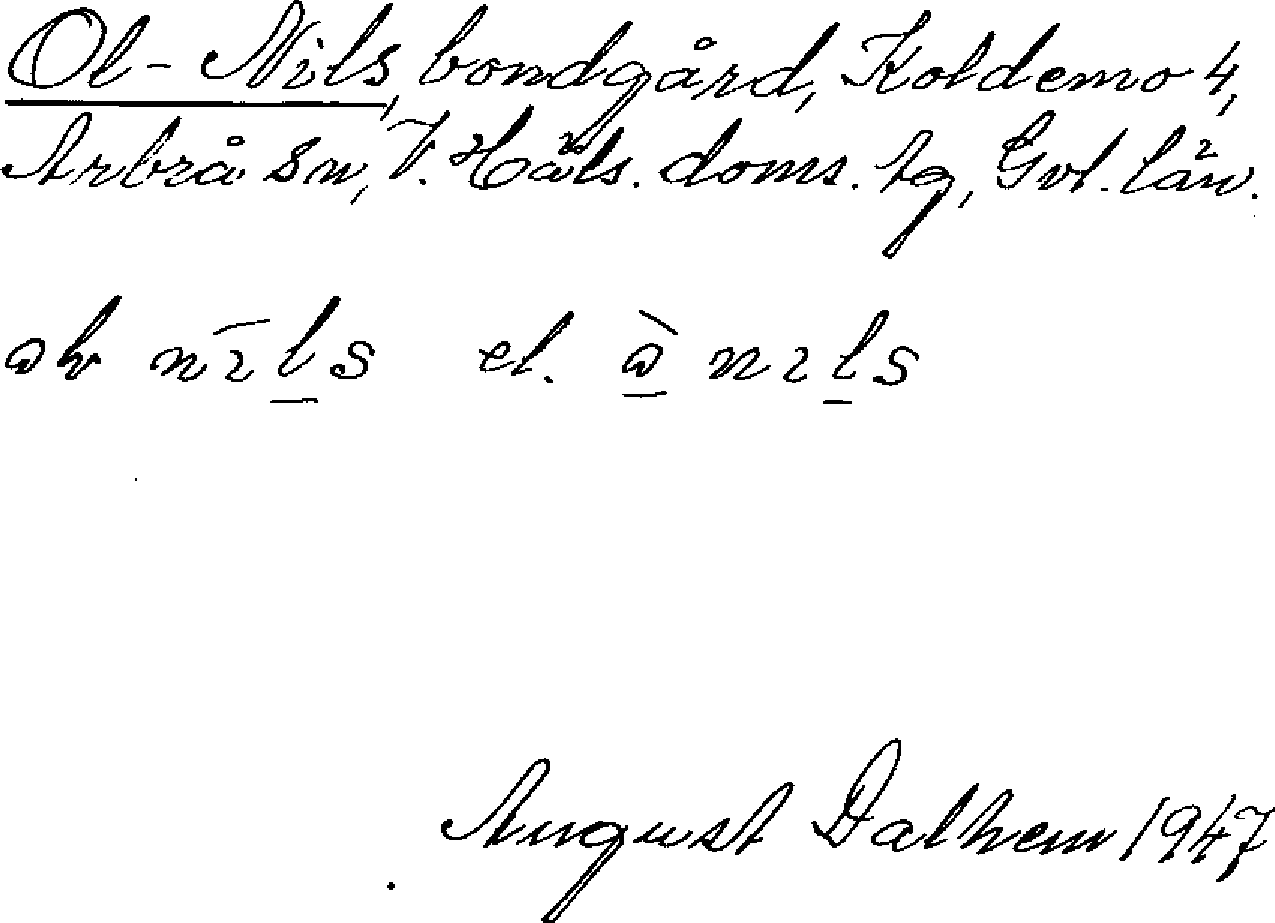 Ol-Nils, bondgård, Koldemo 4,
Arbrå sn, V. Häls. doms. tg, Gvl. län.
el.
August Dalhem 1947